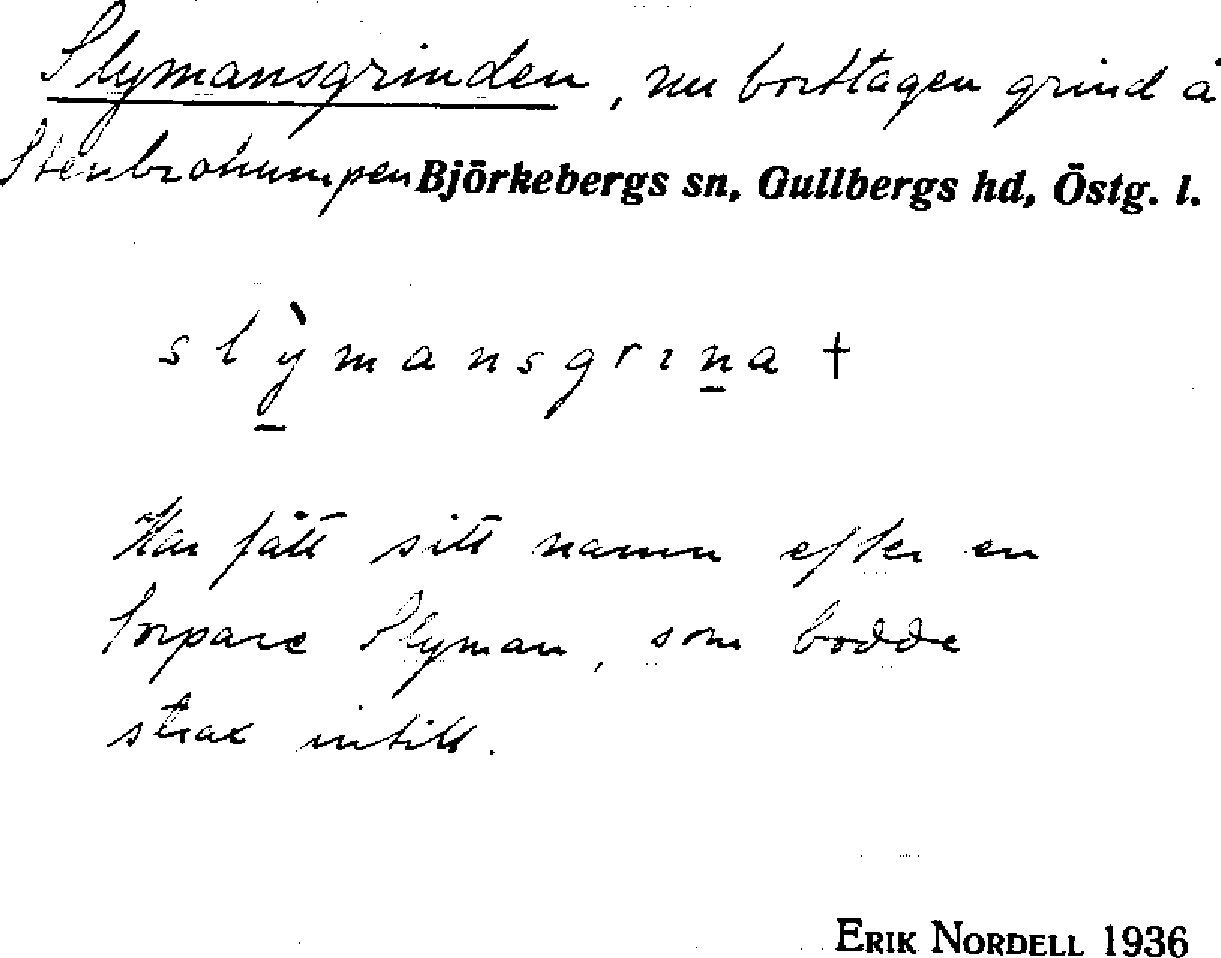 Slymansgrinden, nu borttagen grind å
Stenbrohumpen Björkebergs sn, Gullbergs hd, Östg. l.
slỳmansgrına †
Har fått sitt namn efter en
torpare Slyman, som bodde
strax intill.
ERIK NORDELL 1936